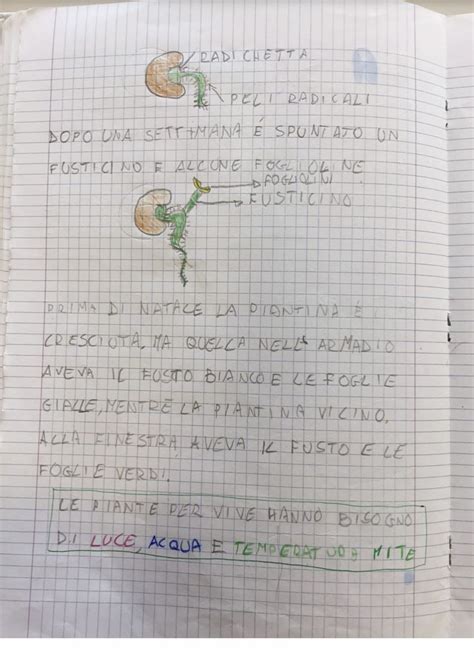 RADICHETTA
PELI RADICALI
DOPO UNA SETTIMANA È SPUNTATO UN
FUSTICINO E ALCUNE FOGLIOLINE
FOGLIOLINI
FUSTICINO
PRIMA DI NATALE LA PIANTINA È
CRESCIUTA, MA QUELLA NELL'ARMADIO
AVEVA IL FUSTO BIANCO E LE FOGLIE
GIALLE, MENTRE LA PIANTINA VICINO,
ALLA FINESTRA, AVEVA IL FUSTO E LE
FOGLIE VERDI.
LE PIANTE PER VIVE HANNO BISOGNO
DI LUCE, ACQUA E TEMPERATURA MITE